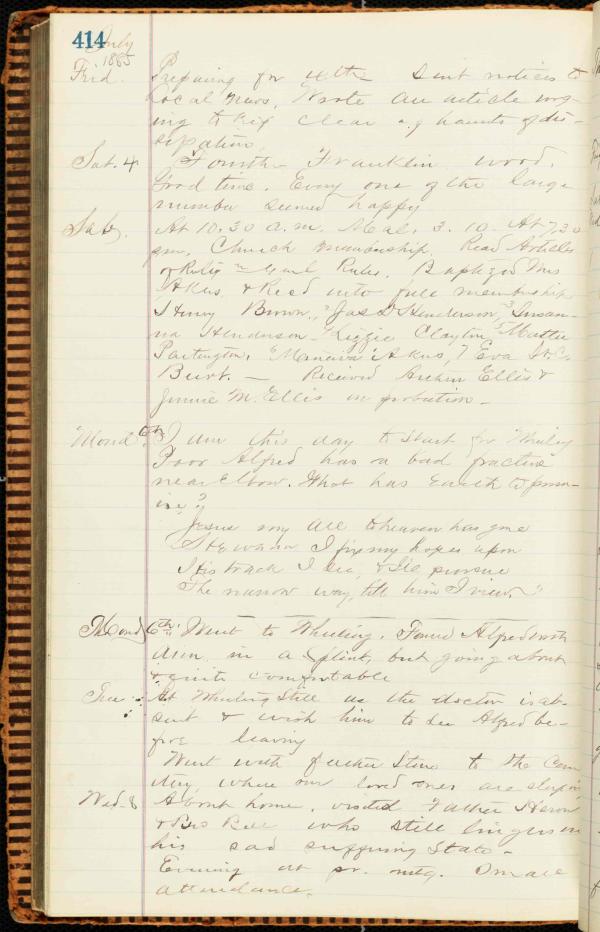 414 July
1885
Frid. Preparing for 4th Sent notices to
Local News. Wrote an article urg-
ing to keep clear of haunts of dis-
sipation.
Sat. 4 Fourth Franklin wood.
Good time. Every one of the large
number seemed happy
Sab. At 10.30 a.m. Mal. 3. 10. At 7.30
pm. Church membership. Read Articles
of Relig. Genl Rules. Baptized Mrs
Akus & Recd into full membership
Henry Brown, Jas D Henderson, 3 Susan-
na Henderson Lizzie Clayton, 5 Mattie
Partington, 6 Minerva Akus, 7 Eva
Burt. — Received Ellis &
Jennie M. Ellis on probation —
Mond 6th I am this day to start for Wheeling
Poor Alfred has a bad fracture
near Elbow. What has Earth to prom-
ise?
"Jesus my all to heaven has gone
He whom I fix my hopes upon
His track I see, & I'll pursue
The narrow way, till him I view."
Mond 6th Went to Wheeling. Found Alfred with
arm in a splint, but going about
& quite comfortable
Tue At Wheeling Still as the doctor is ab-
sent & wish him to see Alfred be-
fore leaving
Went with father to the Cem
etery where our loved ones are sleeping
Wed. 8 About home. visited Father Heron
& Bro Bell who still lingers in
his sad suffering State —
Evening at pr. mtg. Small
attendance.